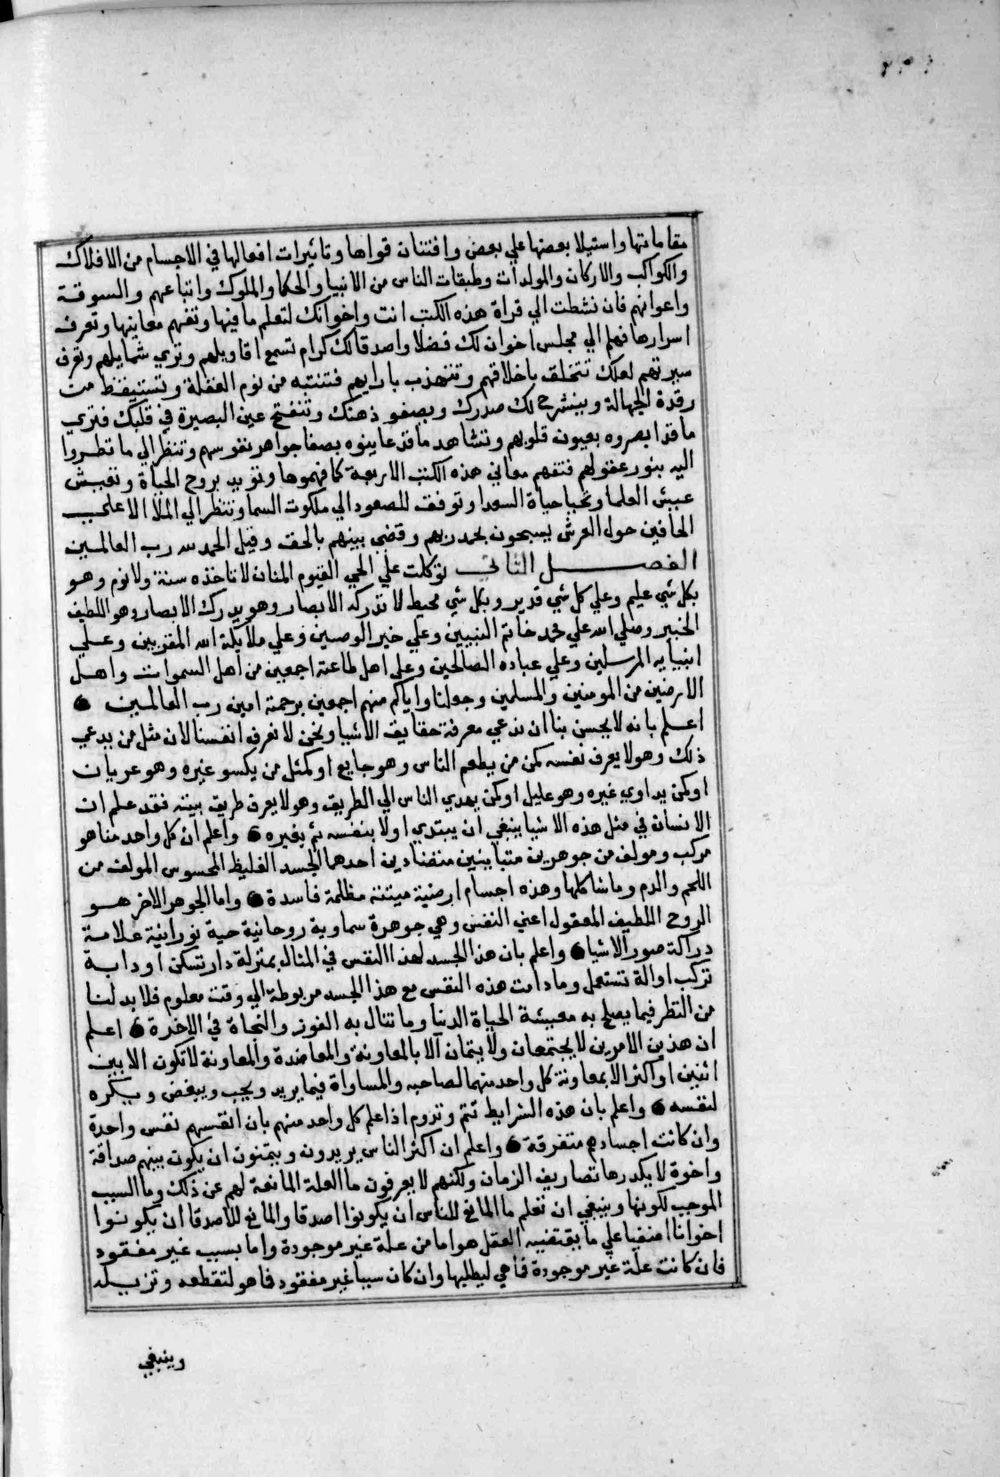 مقاماتها واستيلا بعضها علي بعض وافتنان قواها وتاثيرات افعالها في الاجسام من الافلاك
والكواكب والاركان والمولدات وطبقات الناس من الانبيا والحكما والملوك واتباعهم والسوقة
واعوانهم فان نشطت الي قراة هذه الكتب انت واخوانك لتعلم ما فيها وتفهم معاينها وتعرف
اسرارها فهلم الي مجلس اخوان لك فضلا واصدقا لك كرام تسمع اقاويلهم وتري شمايلهم وتعرف
سيرتهم لعلك تتخلق باخلاقهم وتتهذب بارايهم فتنتبه من نوم الغفلة وتستيقظ من
رقدة الجهالة وينشرح لك صدرك ويصفو ذهنك وتنفتح عين البصيرة في قلبك فتري
ما قد ابصروه بعيون قلوبهم وتشاهد ما قد عاينوه بصفا جواهر نفوسهم وتنظر الي ما نظروا
اليه بنور عقولهم فتفهم معاني هذه الكتب الاربعة كما فهموها وتويد بروح الحياة وتعيش
عيش العلما وتحيا حياة السعدا وتوفق للصعود الي ملكوت السما وتنظر الي الملا الاعلي
الحافين حول العرش يسبحون بحمد ربهم وقضي بينهم بالحق وقيل الحمد لله رب العالمين
الفصل الثاني توكلت علي الحي القيوم المنان لا تاخذه سنة ولا نوم وهو
بكل شي عليم وعلي كل شي قدير وبكل شي محيط لا تدركه الابصار وهو يدرك الابصار وهو اللطيف
الخبير وصلي الله علي محمد خاتم النبيين وعلي خير الوصيين وعلي ملايكة الله المقربين وعلي
انبيايه المرسلين وعلي عباده الصالحين وعلي اهل طاعته اجمعين من اهل السموات واهل
الارضين من المومنين والمسلمين وجعلنا واياكم منهم اجمعين برحمته امين رب العالمين
اعلم بانه لا يحسن بنا ان ندعي معرفة حقايق الاشيا ونحن لا نعرف انفسنا لان مثل من يدعي
ذلك وهو لا يعرف نفسه كمن من يطعم الناس وهو جايع او كمثل من يكسو غيره وهو عريان
او كمن يداوي غيره وهو عليل او كمن يهدي الناس الي الطريق وهو لا يعرف طريق بيته فقد علم ان
الانسان في مثل هذه الاشيا ينبغي ان يبتدي اولا بنفسه ثم بغيره واعلم ان كل واحد منا هو
مركب ومولف من جوهرين متباينين متضادين احدهما الجسد الغليظ المحسوس المولف من
اللحم والدم وما شاكلها وهذه اجسام ارضية ميتته مظلمة فاسدة واما الجوهر الاخر هو
الروح اللطيف المعقول اعني النفس وهي جوهرة سماوية روحانية حية نورانية علامة
دراكة صور الاشيا واعلم بان هذا الجسد لهذا النفس في المثال بمنزلة دار تسكن او دابة
تركب او الة تستعمل وما دامت هذه النفس مع هذا الجسد مربوطة الي وقت معلوم فلا بد لنا
من النظر فيما يصلح به معيشة الحياة الدنيا وما تنال به الفوز والنجاة في الاخرة اعلم
ان هذين الامرين لا يجتمعان ولا يتمان الا بالمعاونة والمعاضدة والمعاونة لا تكون الا بين
اثنين او اكثر الا بمعاونة كل واحد منهما لصاحبه والمساواة فيما يريد ويحب ويبغض ويكره
لنفسه واعلم بان هذه الشرايط تتم وتدوم اذا علم كل واحد منهم بان انفسهم نفس واحدة
وان كانت اجسادهم متفرقة واعلم ان اكثر الناس يريدون ويتمنون ان يكون بينهم صداقة
واخوة لا يكدرها تصاريف الزمان ولكنهم لا يعرفون ما العلة المانعة لهم عن ذلك وما السبب
الموجب لكونها وينبغي ان نعلم ما المانع للناس ان يكونوا اصدقا والمانع للاصدقا ان يكونوا
اخوانا اصفيا علي ما يقتضيه العقل هو اما من علة غير موجودة واما بسبب غير مفقود
فان كانت علة غير موجودة فما هي ليطلبها وان كان سببا غير مفقود فما هو لنقطعه ونزيله
وينبغي